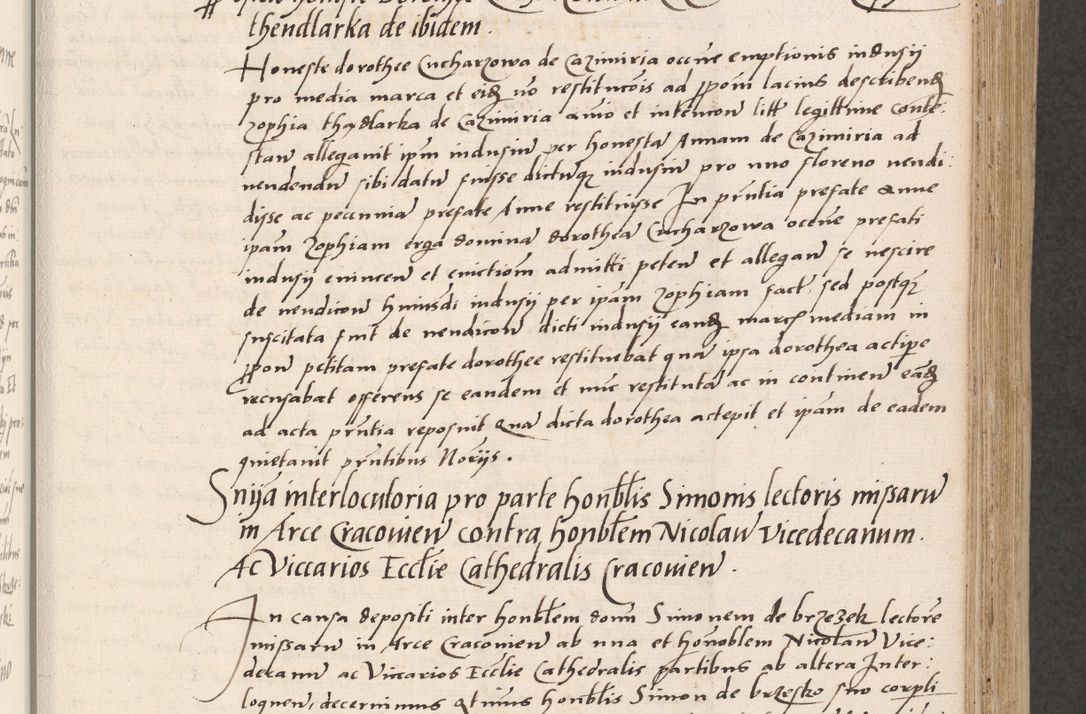 thendlarka de ibidem.
Honeste dorothee Cucharzowa de Cazimiria occne emptionis indusij
pro media marca et eidem restitucois ad ppom lacius describend
zophia thendlarka de Cazimiria animo et intencon litt legittime conte:
stan allegauit ipm indusium per honesta Annam de Cazimiria ad
uendendu sibi datu fuisse dictumq indusium pro uno floreno uendi:
disse ac pecunia prefate Anne restituisse In pntia prefate Anne
ipam Zophiam erga domina dorothea Cucharzowa occne prefati
indusij euincen et euictiom admitti peten et allegan se nescire
de uendicon huiusdi indusij per ipam Zophiam fact sed postq
suscitata fuit de uendicon dicti indusij eand marce mediam in
ppon petitam prefate dorothee restituebat qua ipsa dorothea accipe
recusabat offerens se eandem et nuc restituta ac in continen eand
ad acta pntia reposuit Qua dicta dorothea acepit et ipam de eadem
quietauit pntibus Norijs.
Snija interlocutoria pro parte honblis Simonis lectoris missaru
in Arce Cracouien contra honblem Nicolau Vicedecanum
Ac Viccarios Ecclie Cathedralis Cracouien.
In causa depositi inter honblem domn Simonem de brzezek lectore
missaru in Arce Cracouien ab una et honoblem Nicolau Vice:
decanu ac Viccarios Ecclie Cathedralis partibus ab altera Inter:
loquen, decernimus Qtinus honblis Simon de brzesko suo corpli